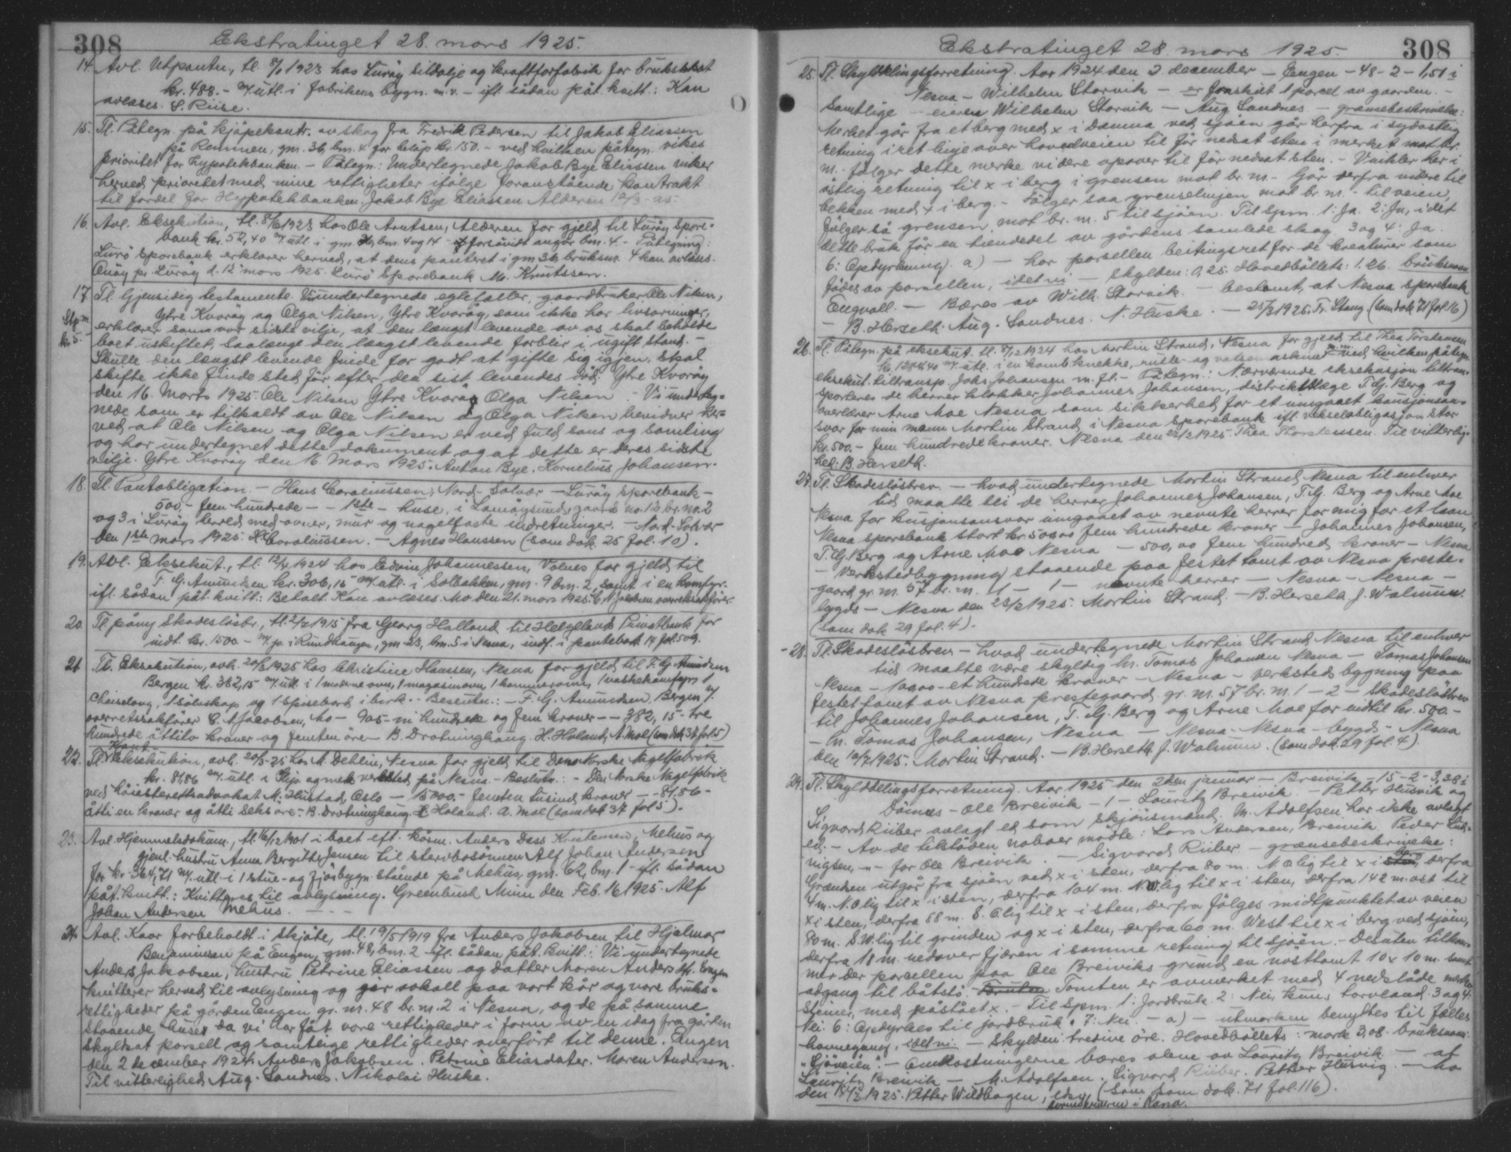 308
Ekstratinget 28. mars 1925.
14. Avl. Utpantn, tl. 8/1 1923 hos Lurøy sildolje og kraftforfabrik for bruksskat
kr. 488.- m/ utl. i fabrikens bygn. m.v. - ifl. sådan påt. kvitt: Kan
avleses. S. Riise.
15. Tl. Påtegn. på kjøpekontr. av skog fra Fredrik Pedersen til Jakob Eliassen
på Rommen, gm. 36, bm. 4 for beløp kr. 150.- ved hvilken påtegn. vikes
prioritet for Hypotekbanken. - Påtegn: Undertegnede Jakob Bye Eliassen viker
herved prioritet med mine rettigheter ifølge foranstående kontrakt
til fordel for Hypotekbanken. Jakob Bye Eliassen Alderen 12/3-25.
16. Avl. Eksekution, tl. 8/6 1923 hos Ole Arntsen, Alderen for gjeld til Lurøy Spare-
bank kr. 52,40 m/ utl. i gm. 36, bm. 4 og 14 - forsåvidt angår bm. 4. - Påtegning:
Lurø Sparebank erklærer herved, at dens panteret i gm 36 bruksnr. 4 kan avleses.
Onøy pr. Lurøy d. 12 mars 1925. Lurø Sparebank M. Knutssen.
17. Tl. Gjensidig testamente. Undertegnede egtefæller, gaardbruker Ole Nilsen,
Stpm Ytre Kvarøy og Olga Nilsen, Ytre Kvarøy, som ikke har livsarvinger,
k. 5.- erklærer som vor sidste vilje, at den længst levende av os skal beholde
boet uskiftet, saalænge den længst levende forblir i ugift stand. -
Skulle den længst levende finde for godt at gifte sig igjen, skal
skifte ikke finde sted før efter den sist levendes død. Ytre Kvarøy
den 16 Marts 1925. Ole Nilsen Ytre Kvarøy Olga Nilsen - Vi underteg-
nede som er tilkaldt av Ole Nilsen og Olga Nilsen bevidner her-
ved at Ole Nilsen og Olga Nilsen er ved fuld sans og samling
og har undertegnet dette dokument og at dette er deres sidste
vilje. Ytre Kvarøy den 16 Mars 1925. Anton Bye, Kornelius Johansen.
18. Tl. Pantobligation. - Hans Coraliussen, Nord-Solvær - Lurøy sparebank -
500,- fem hundrede - - 1ste - huse, i Lamøysund, gaards no. 13, br. no. 2
og 3 i Lurøy herred med ovner, mur og nagelfaste indretninger. - Nord-Solvær
den 1ste mars 1925. H Coraliussen. - Agnes Hanssen (som dok. 25 fol. 10).
19. Avl. Eksekut., tl. 12/4 1924 hos Edvin Johannessen, Valnes for gjeld til
F. G. Amundsen kr. 306,15 m/ utl. i Solbakken, gm. 9 bm. 2, samt i en komfyr.
ifl. sådan påt. kvitt: Betalt. Kan avleses Mo den 21. mars 1925. C. A. Jacobsen overretssakfører.
20. Tl. påny Skadesløsbr., tl. 2/2 1915 fra Georg Halland til Helgelands Privatbank for
indt. kr. 1500.- m/ p. i Rundhaugen, gm. 33, bm. 5 i Nesna, indf. i pantebok 14 fol. 509.
21. Tl. Eksekution, avh. 24/3 1925 hos Christine Hansen, Nesna for gjeld til F. G. Amundsen
Bergen kr. 382,15 m/ utl. i 1 moderne ovn, 1 magasinovn, 1 kammerovn, 1 vaskekomfyr, 1
chaiselong, 1 salonskap og 1 spisebord i birk. - Besenta: - F. G. Amundsen Bergen v/
overretssakfører C. A. Jacobsen, Mo - 905 - ni hundrede og fem kroner - - 382,15 - tre
hundrede åttito kroner og femten øre - B. Drotninghaug. H. Holand. A. Moe (som dok 37 fol 5)
22. Tl. Eksekution, avh. 24/3-25 hos M. Dehlin, Nesna for gjeld til Den Norske Nagelfabrik
kr. 81,86 m/ utl. i Skip og nek verksted på Nesna - Besluts: - Den norske Nagelfabrik
ved høiesteretsadvokat M. Hustad, Oslo - 15.00.- Femten tusind kroner - - 81,56 -
åtti en kroner og åtti seks øre - B. Drotninghaug. H Holand. A. Moe (som dok 37 fol 5).
23. Avl. Hjemmelsdokum., tl. 16/12 1901 i boet eft. kårm. Anders Dass Knutsen, Mehus og
gjenl. hustru Anna Birgitte Jensen til stervbosønnen Alf Johan Andersen
for kr. 364,71 m/ utl. i 1 stue- og fjøsbygn. stående på Mehus, gm. 62, bm. 1 - ifl. sådan
påt. kvitt: Kvitteres til avlysning. Greenbush Minn den Feb. 16 1925. Alf
Johan Andersen Mehus. - - -
24. Avl. Kaar forbeholdt i skjøte, tl. 19/5 1919 fra Anders Jakobsen til Hjelmar
Benjaminsen på Engen, gm. 48, bm. 2 - ifl. sådan påt. kvitt: Vi undertegnede
Anders Jakobsen, hustru Petrine Eliassen og datter Maren Andersdtr. Engen
kvitterer herved til avlysning og gir avkall paa vort kår og vore bruks-
rettigheder på gården Engen gr. nr. 48 br. nr. 2 i Nesna, og de på samme
staaende huse, da vi har fåt vore rettigheder i form av en idag fra gården
skyldsat parsell og samtlige rettigheder overført til denne. Engen
den 2 december 1924. Anders Jakobsen. Petrine Eliasdater. Maren Andersen.
Til vitterlighed: Aug. Sandnes. Nikolai Huske.
308
Ekstratinget 28 mars 1925.
25. Tl. Skylddelingsforretning. Aar 1924 den 2 december - Engen - 48 - 2 - 1,51 i
Nesna - Wilhelm Storvik - er fraskilt 1 parcel av gaarden. -
Samtlige - eieren Wilhelm Storvik - Aug Sandnes - grænsebeskrivelse:
Merket går fra et berg med x i Damna ved sjøen går herfra i sydøstlig
retning i ret linje over hovedveien til før nedsat sten i merket mot br.
nr. følger dette merke videre opover til før nedsat sten. - Vinkler her i
østlig retning til x i berg i grensen mot br. nr. - Går derfra videre til
bekken med x i berg. - Følger saa grenselinjen mot br. nr. til veien,
følger så grensen mot br. nr. 5 til sjøen. Til spm. 1: Ja. 2: Ja, idet
dette bruk får en tiendedel av gårdens samlede skog. 3 og 4: Ja.
6: Opdyrkning a) - har parsellen beitingsret for de kreaturer som
fødes av parsellen, idet ni - skylden: 0,25. Hovedbøllets: 1,26. bruksnavn
Engvall - Bæres av Wilh. Storvik. - bestemt, at Nesna sparebank
- B. Herseth. Aug. Sandnes. N. Huske. - 25/3 1925. Fr. Stang (som dok 71 fol 16)
26. Tl. Påtegn. på eksekut. tl. 9/2 1924 hos Martin Strand, Nesna for gjeld til Thea Torstensen
kr. 1244,40 m/ utl. i en komb. knekke, rulle- og valsemaskine m.m. - ved hvilken påtegn.
eksekut. tiltransp. Johs Johansen m.fl. - Påtegn: Nærværende eksekusjon tiltran-
sporteres de herrer klokker Johannes Johansen, distriktslæge T. G. Berg og
overlærer Arne Moe Nesna som sikkerhed for et inngaatt kausjonsan-
svar for min mann Martin Strand i Nesna sparebank ifl. vekselobligasjon stor
kr. 500.- fem hundrede kroner. Nesna den 23/3 1925. Thea Thorstensen. Til vitterlig-
het: B. Herseth.
27. Tl. Skadesløsbrev. - hvad undertegnede Martin Strand Nesna til enhver
tid maatte bli de herrer Johannes Johansen, T. G. Berg og Arne Moe
Nesna for kausjonsansvar inngaaet av nevnte herrer for mig for et laan i
Nesna sparebank stort kr. 500.00 fem hundrede kroner - Johannes Johansen,
T. G. Berg og Arne Moe Nesna - 500,00 fem hundred kroner - Nesna
- Verkstedbygning staaende paa festet tomt av Nesna preste-
gaard gr. nr. 57 br. nr. 1 - 1 - nevnte herrer - Nesna - Nesna -
bygds - Nesna den 23/3 1925. Martin Strand. - B. Herseth J. Walnum.
(som dok 29 fol. 4).
28. Tl. Skadesløsbrev - hvad undertegnede Martin Strand Nesna til enhver
tid maatte være skyldig hr. Tomas Johansen Nesna - Tomas Johansen
- Nesna - 100.00 - et hundrede kroner - Nesna - verksted bygning paa
festet tomt av Nesna prestegaard gr. nr. 57 br. nr. 1 - 2 - Skadesløsbrev
til Johannes Johansen, T. G. Berg og Arne Moe for indtil kr. 500.-
- hr. Tomas Johansen, Nesna - Nesna - Nesna - bygds - Nesna
den 1925. Martin Strand. - B. Herseth J. Walnum. (som dok 29 fol. 4).
29. Tl. Skylddelingsforretning. Aar 1925 den 2den januar - Breivik - 15 - 2 - 3,38 i
Dønnes - Ole Breivik - 1 - Lauritz Breivik. - Petter Husvik og
Sigvard Riiber avlagt ed som skjønsmænd. M. Adolfsen har ikke avlagt
ed. - Av de tilstøden naboer møtte: Lars Andersen, Breivik, Peder Lud-
vigsen, - for Ole Breivik. - Sigvard Riiber - grænsebeskrivelse:
Grænsen utgår fra sjøen ved x i sten, derfra 80 m. N Ø lig til x i sten, derfra
4 m. N Ø lig til x i sten, derfra 104 m. N V lig til x i sten, derfra 142 m. øst til
x i sten, derfra 58 m. S. Ø lig til x i sten, derfra følges midtpunktet av veien
80 m. S. V. lig til grinden og x i sten, derfra 60 m. Vest til x i berg ved sjøen,
derfra 18 m. nedover fjæren i samme retning til sjøen. - Desuten tilkom-
mer der parsellen paa Ole Breiviks grund en nausttomt 10 x 10 m. samt
adgang til båtstø. Tomten er avmerket med 4 nedslåde merke-
stener, med påslået x. Til Spm. 1: Jordbruk. 2: Nei, kuns torvland. 3 og 4:
Nei. 6: Opdyrkes til jordbruk. 7: Nei - a) - utmarken benyttes til fælles
havnegang. idet ni: - skylden: tredive øre. Hovedbøllets: mark 3,08. bruksnavn
"Sjøveien". - Omkostningerne bæres alene av Lauritz Breivik - at
Lauritz Breivik - M. Adolfsen. Sigvard Riiber. Petter Husvig. - Mo
den 18/3 1925. Petter Wildhagen, edsv. (som pan dok. 71 fol 116).
sorenskriveren i Rana.